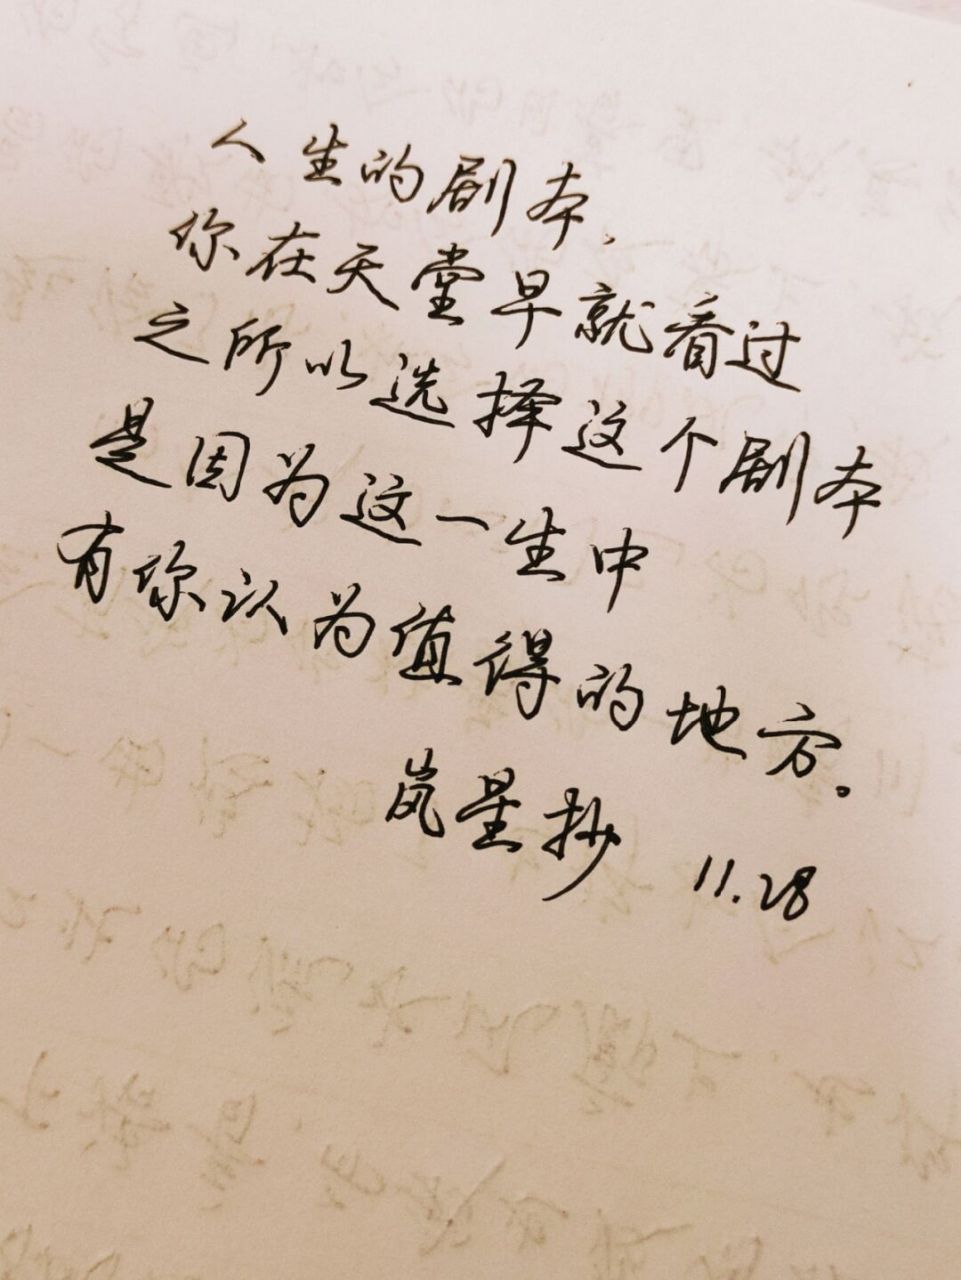 人生的剧本,
你在天堂早就看过
之所以选择这个剧本
是因为这一生中
有你认为值得的地方。
岚星抄 11.28